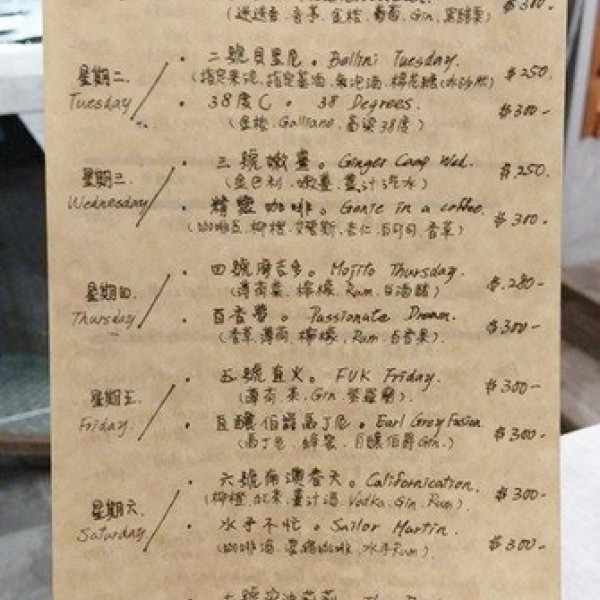 (迷迭香.香草.金桔.葡萄.Gin.黑醋栗) $300-
星期二. Tuesday
· 二號貝里尼。Bellini Tuesday. $250.
(指定果泥.指定基酒.氣泡酒.棉花糖(冰沙狀)
· 38度C。38 Degrees. $300-
(金桔.Galliano.高粱38度)
星期三. Wednesday
· 三號嫩薑。Ginger Camp Wed. $250.
(金巴利.嫩薑.薑汁汽水)
· 精靈咖啡。Genie in a coffee. $300-
(咖啡豆.柳橙.艾碧斯.杏仁.可可.香草)
星期四. Thursday
· 四號摩吉多。Mojito Thursday. $.280-
(薄荷葉.檸檬.Rum.白酒醋)
· 百香夢。Passionate Dream. $300-
(香草.薄荷.檸檬.Rum.百香果)
星期五. Friday.
· 五號直火。FUK Friday. $300-
(薄荷.茶.Gin.紫羅蘭)
· 自釀伯爵馬丁尼。Earl Grey Fusion. $300-
(馬丁尼.蜂蜜.自釀伯爵Gin.)
星期六. Saturday
· 六號南漢春天。Californication. $300-
(柳橙.紅茶.薑汁酒.Vodka.Gin.Rum)
· 水手不忙。Sailor Martin. $300-
(咖啡酒.濃縮咖啡.水手Rum).